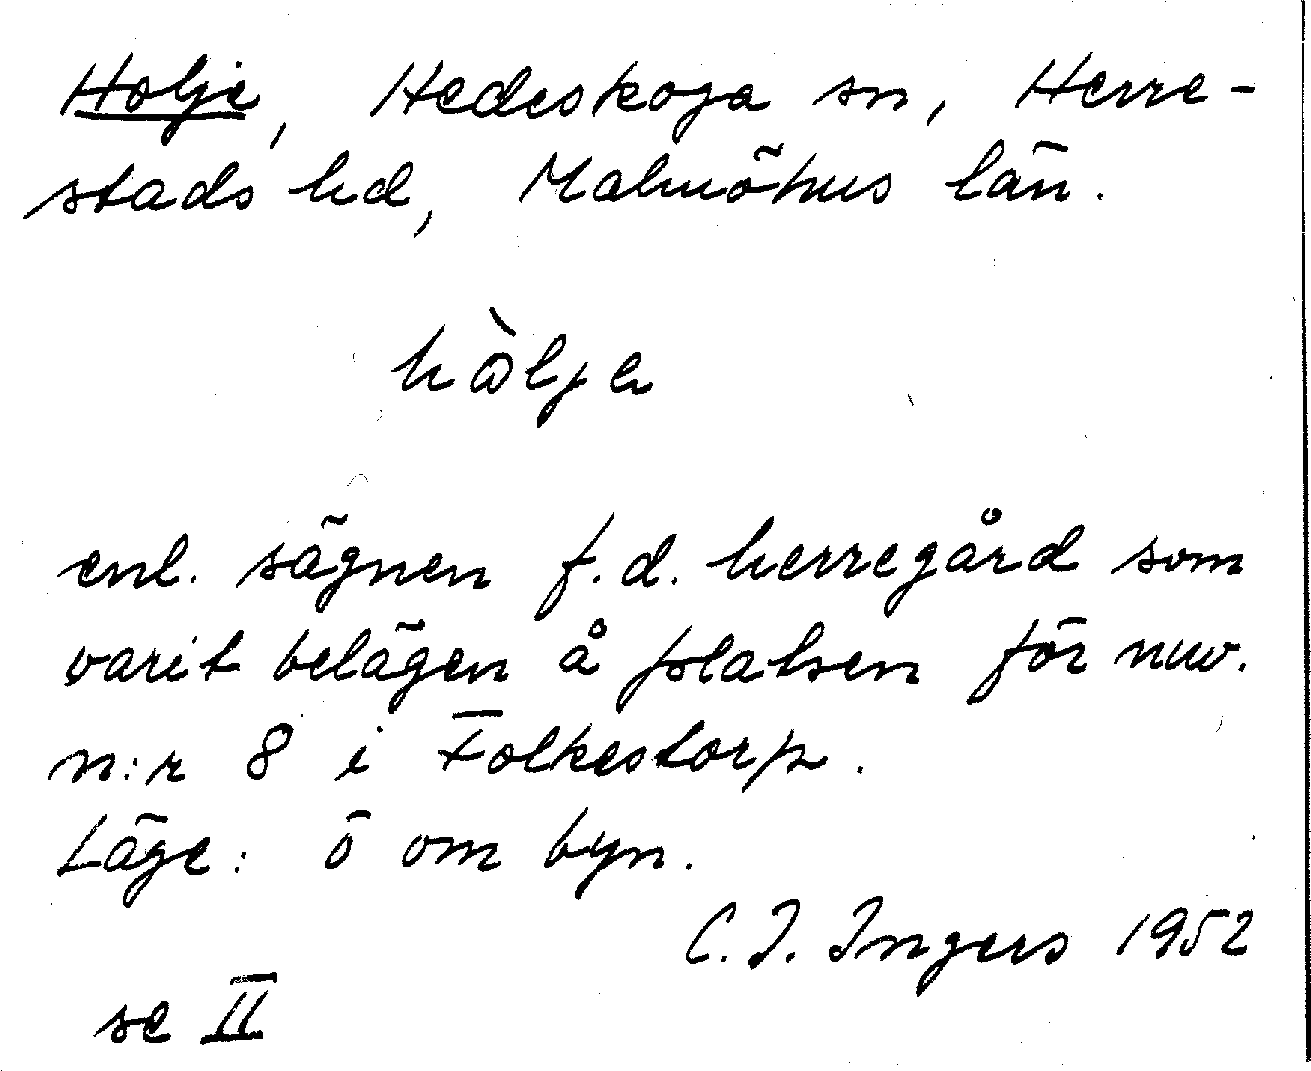 Holje, Hedeskoga sn, Herre-
stads hd, Malmöhus län.
enl. sägnen f.d. herregård som
varit belägen å platsen för nuv.
n:r 8 i Folkestorp.
Läge: ö om byn.
C. I. Ingers 1952
se II